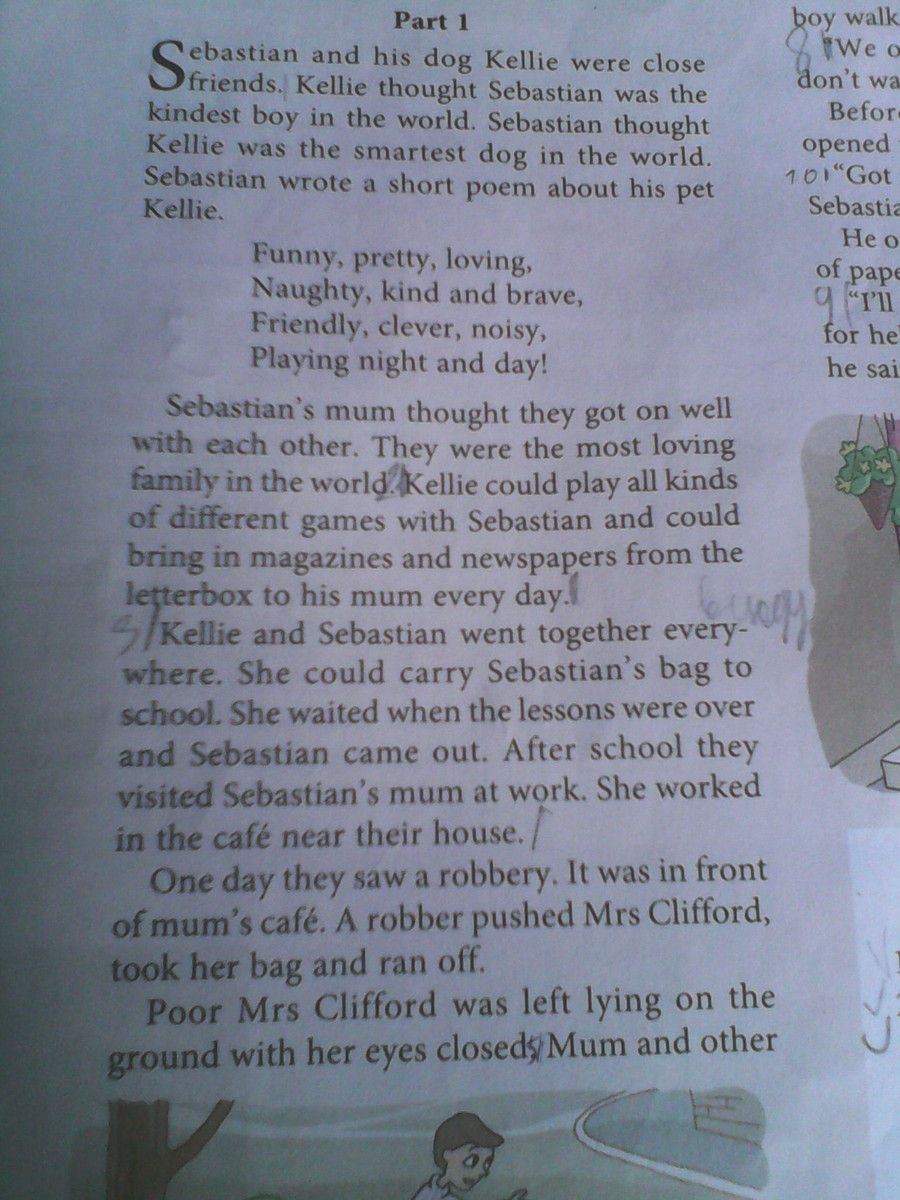 Part 1
Sebastian and his dog Kellie were close
friends. Kellie thought Sebastian was the
kindest boy in the world. Sebastian thought
Kellie was the smartest dog in the world.
Sebastian wrote a short poem about his pet
Kellie.
Funny, pretty, loving,
Naughty, kind and brave,
Friendly, clever, noisy,
Playing night and day!
Sebastian's mum thought they got on well
with each other. They were the most loving
family in the world. Kellie could play all kinds
of different games with Sebastian and could
bring in magazines and newspapers from the
letterbox to his mum every day.
Kellie and Sebastian went together every-
where. She could carry Sebastian's bag to
school. She waited when the lessons were over
and Sebastian came out. After school they
visited Sebastian's mum at work. She worked
in the café near their house.
One day they saw a robbery. It was in front
of mum's café. A robber pushed Mrs Clifford,
took her bag and ran off.
Poor Mrs Clifford was left lying on the
ground with her eyes closed. Mum and other
boy walk
8 "We o
don't wa
Before
opened
10 "Got
Sebastia
He o
of pape
9 "I'll
for he
he sai